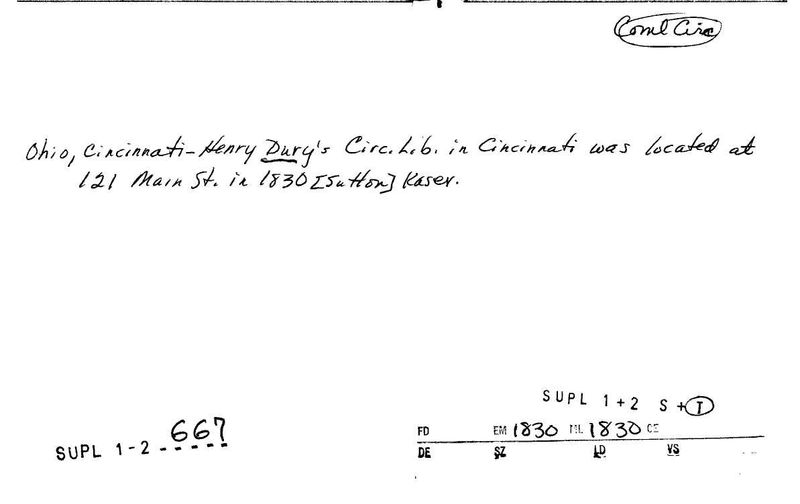 Coml Circ
Ohio, Cincinnati-Henry Dury's Circ. Lib. in Cincinnati was located at
121 Main St. in 1830 [Sutton] Kaser.
SUPL 1+2 S+I
SUPL 1-2 667
FD EM 1830 ML 1830 CE
DE SZ LD VS